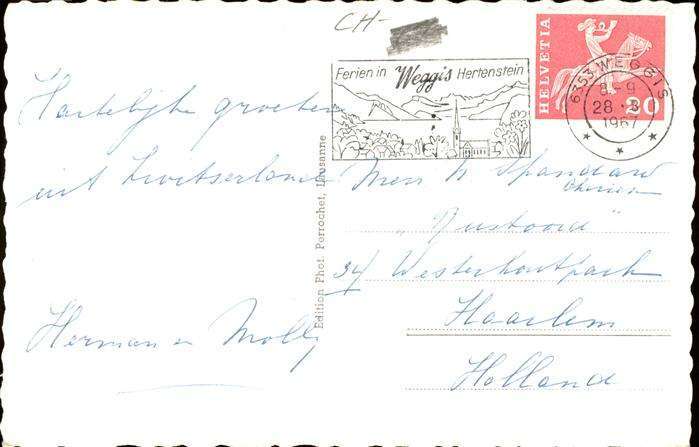 CH-
Ferien in Weggis Hertenstein
HELVETIA
30
6353 WEGGIS
8-9
28.-8
1967
Hartelijke groeten
uit Zwitserland
Herman en Molly
Edition Phot. Perrochet, Lausanne
Mevr
34 Westerhoutpark
Haarlem
Holland